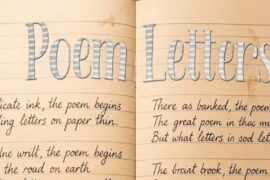 Poem Letters
icate ink, the poem begins
ing letters on paper thin.
ne wrill, the poem begins
the road on earth
There as banked, the poem
The great poem in that m
But what letters in sod let
The brcist brook, the poem